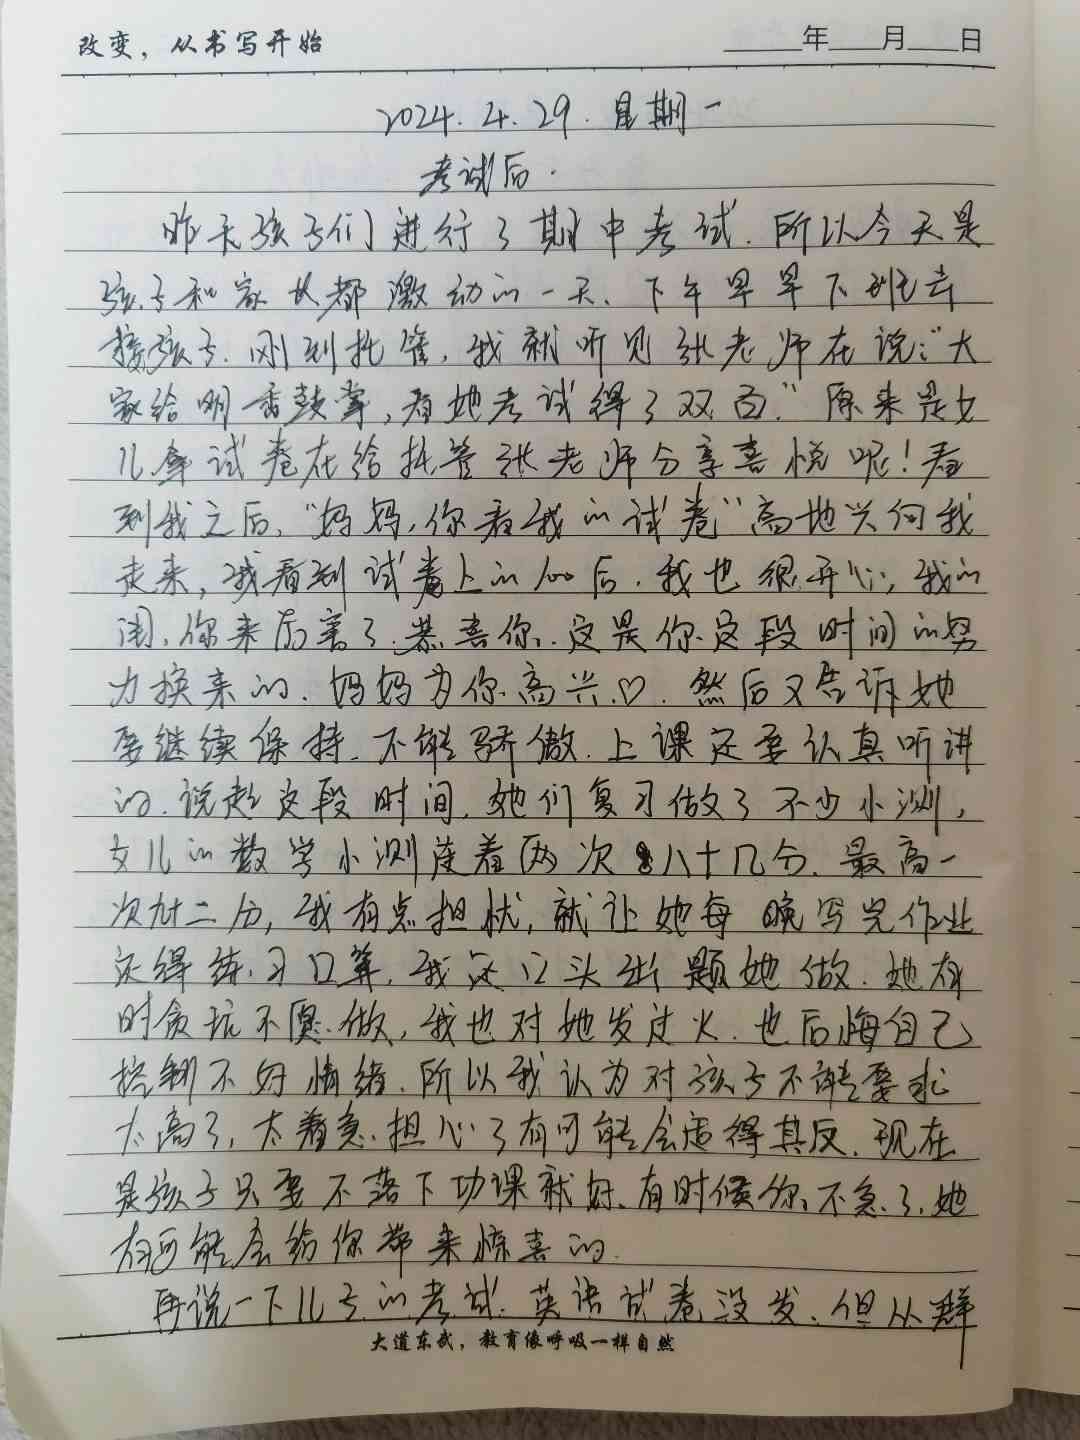 改变，从书写开始
年 月 日
2024.4.29.星期一
考试后.
昨天孩子们进行了期中考试.所以今天是
孩子和家长都激动的一天、下午早早下班去
接孩子.刚到托管,我就听见张老师在说:“大
家给明香鼓掌,看她考试得了双百.”原来是女
儿拿试卷在给托管张老师分享喜悦呢!看
到我之后,“妈妈,你看我的试卷”高地兴向我
走来,我看到试卷上的100后.我也很开心,我的
闺,你来厉害了.恭喜你.这是你这段时间的努
力换来的.妈妈为你高兴♡.然后又告诉她
要继续保持.不能骄傲.上课还要认真听讲
的.说起这段时间.她们复习做了不少小测,
女儿的数学小测连着两次八十几分.最高一
次九十二分,我有点担忧,就让她每晚写完作业
还得练习口算,我还口头出题她做.她有
时贪玩不愿做,我也对她发过火.也后悔自己
控制不好情绪.所以我认为对孩子不能要求
太高了,太着急.担心了有可能会适得其反.现在
是孩子只要不落下功课就好.有时候你不急了.她
有可能会给你带来惊喜的.
再说一下儿子的考试.英语试卷没发.但从群
大道东武，教育像呼吸一样自然